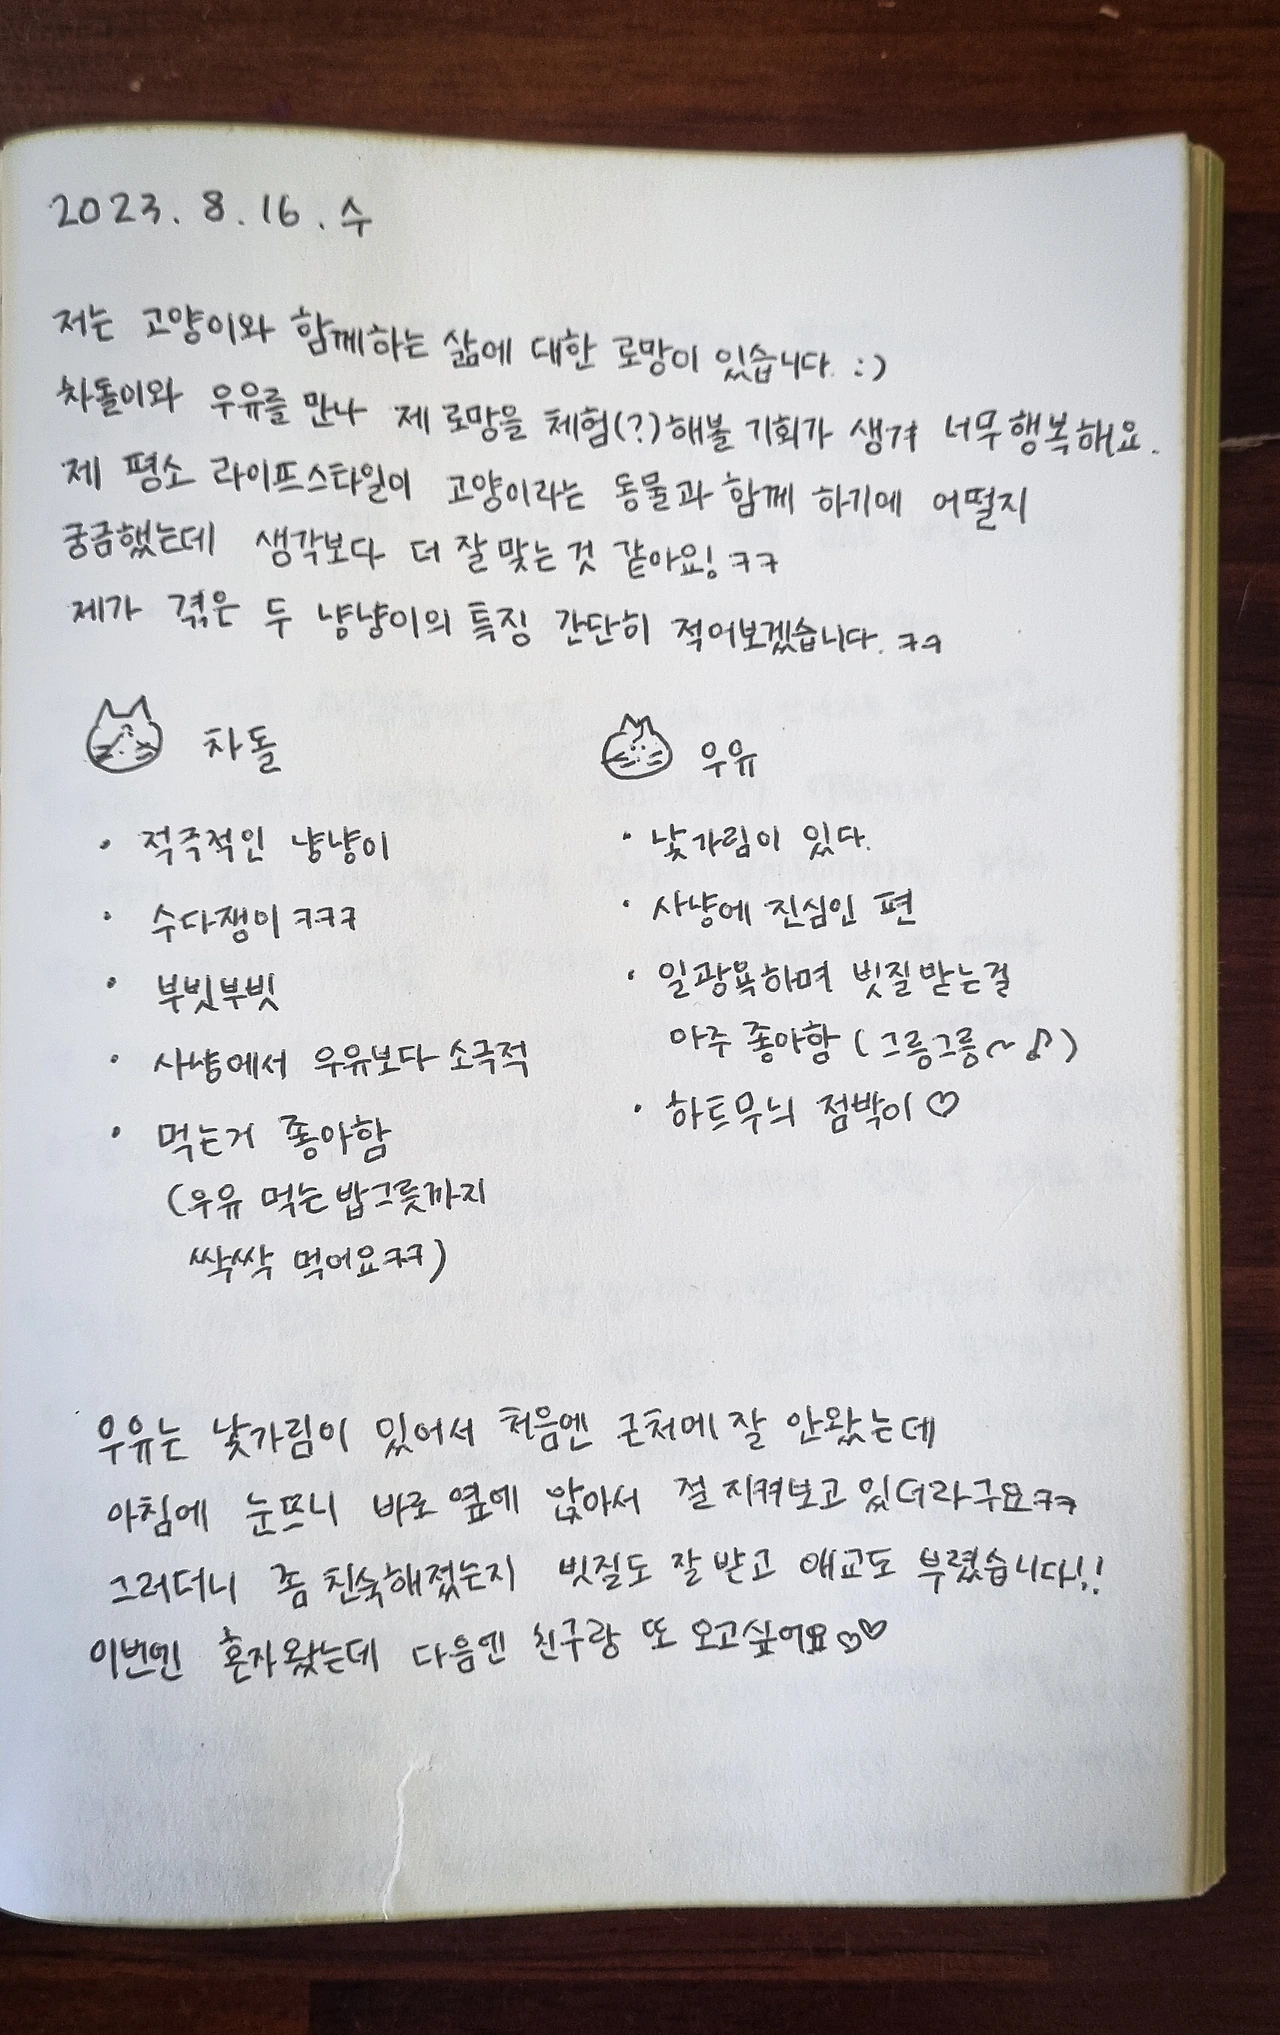 2023. 8. 16. 수
저는 고양이와 함께하는 삶에 대한 로망이 있습니다. :)
차돌이와 우유를 만나 제 로망을 체험(?)해볼 기회가 생겨 너무 행복해요.
제 평소 라이프스타일이 고양이라는 동물과 함께 하기에 어떨지
궁금했는데 생각보다 더 잘 맞는 것 같아요! ㅋㅋ
제가 겪은 두 냥냥이의 특징 간단히 적어보겠습니다. ㅋㅋ
차돌
· 적극적인 냥냥이
· 수다쟁이 ㅋㅋㅋ
· 부빗부빗
· 사냥에서 우유보다 소극적
· 먹는거 좋아함
(우유 먹는 밥그릇까지
싹싹 먹어요ㅋㅋ)
우유
· 낯가림이 있다.
· 사냥에 진심인 편
· 일광욕하며 빗질받는걸
아주 좋아함 (그릉그릉~♪)
· 하트무늬 점박이♡
우유는 낯가림이 있어서 처음엔 근처에 잘 안왔는데
아침에 눈뜨니 바로 옆에 앉아서 절 지켜보고 있더라구요ㅋㅋ
그러더니 좀 친숙해졌는지 빗질도 잘 받고 애교도 부렸습니다!!
이번엔 혼자왔는데 다음엔 친구랑 또 오고싶어요♡♡